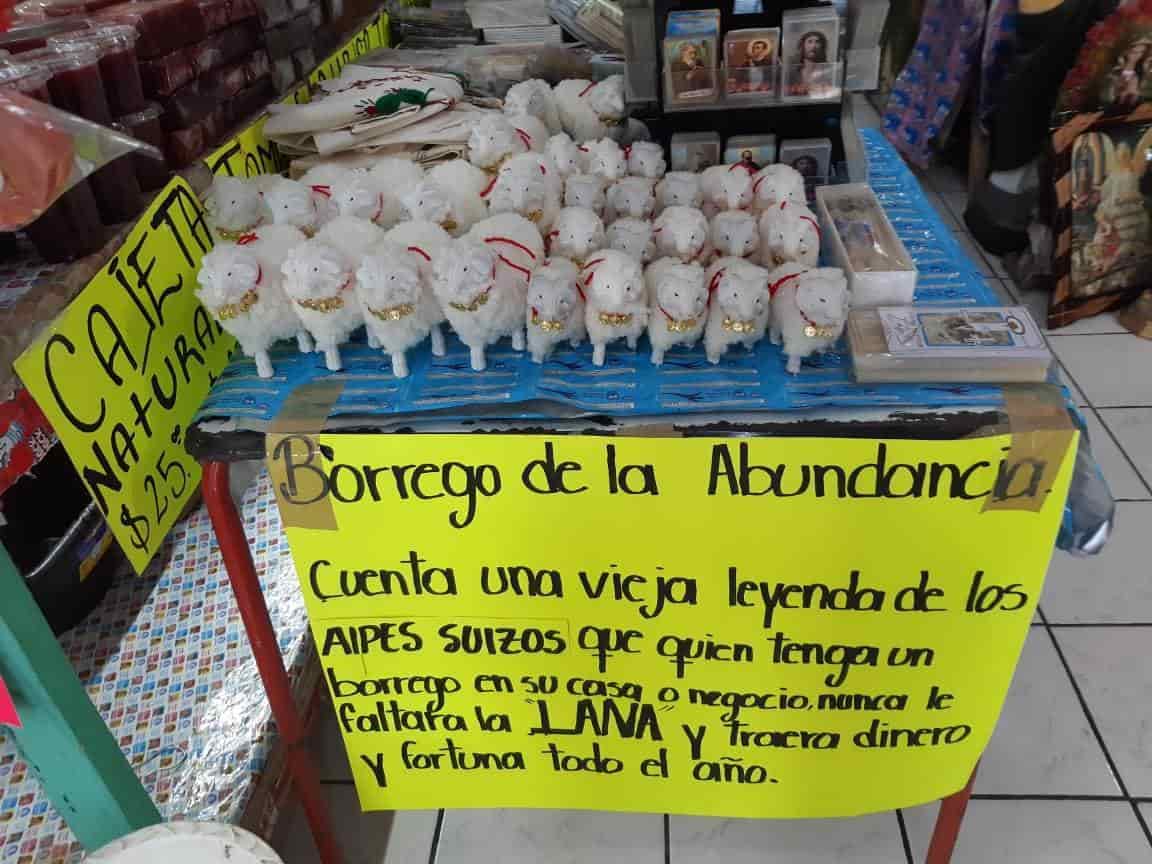 CAJETA
NATURAL
$25.
Borrego de la Abundancia.
Cuenta una vieja leyenda de los
AlPES SUIZOS que quien tenga un
borrego en su casa o negocio, nunca le
faltara la "LANA" y traera dinero
y fortuna todo el año.